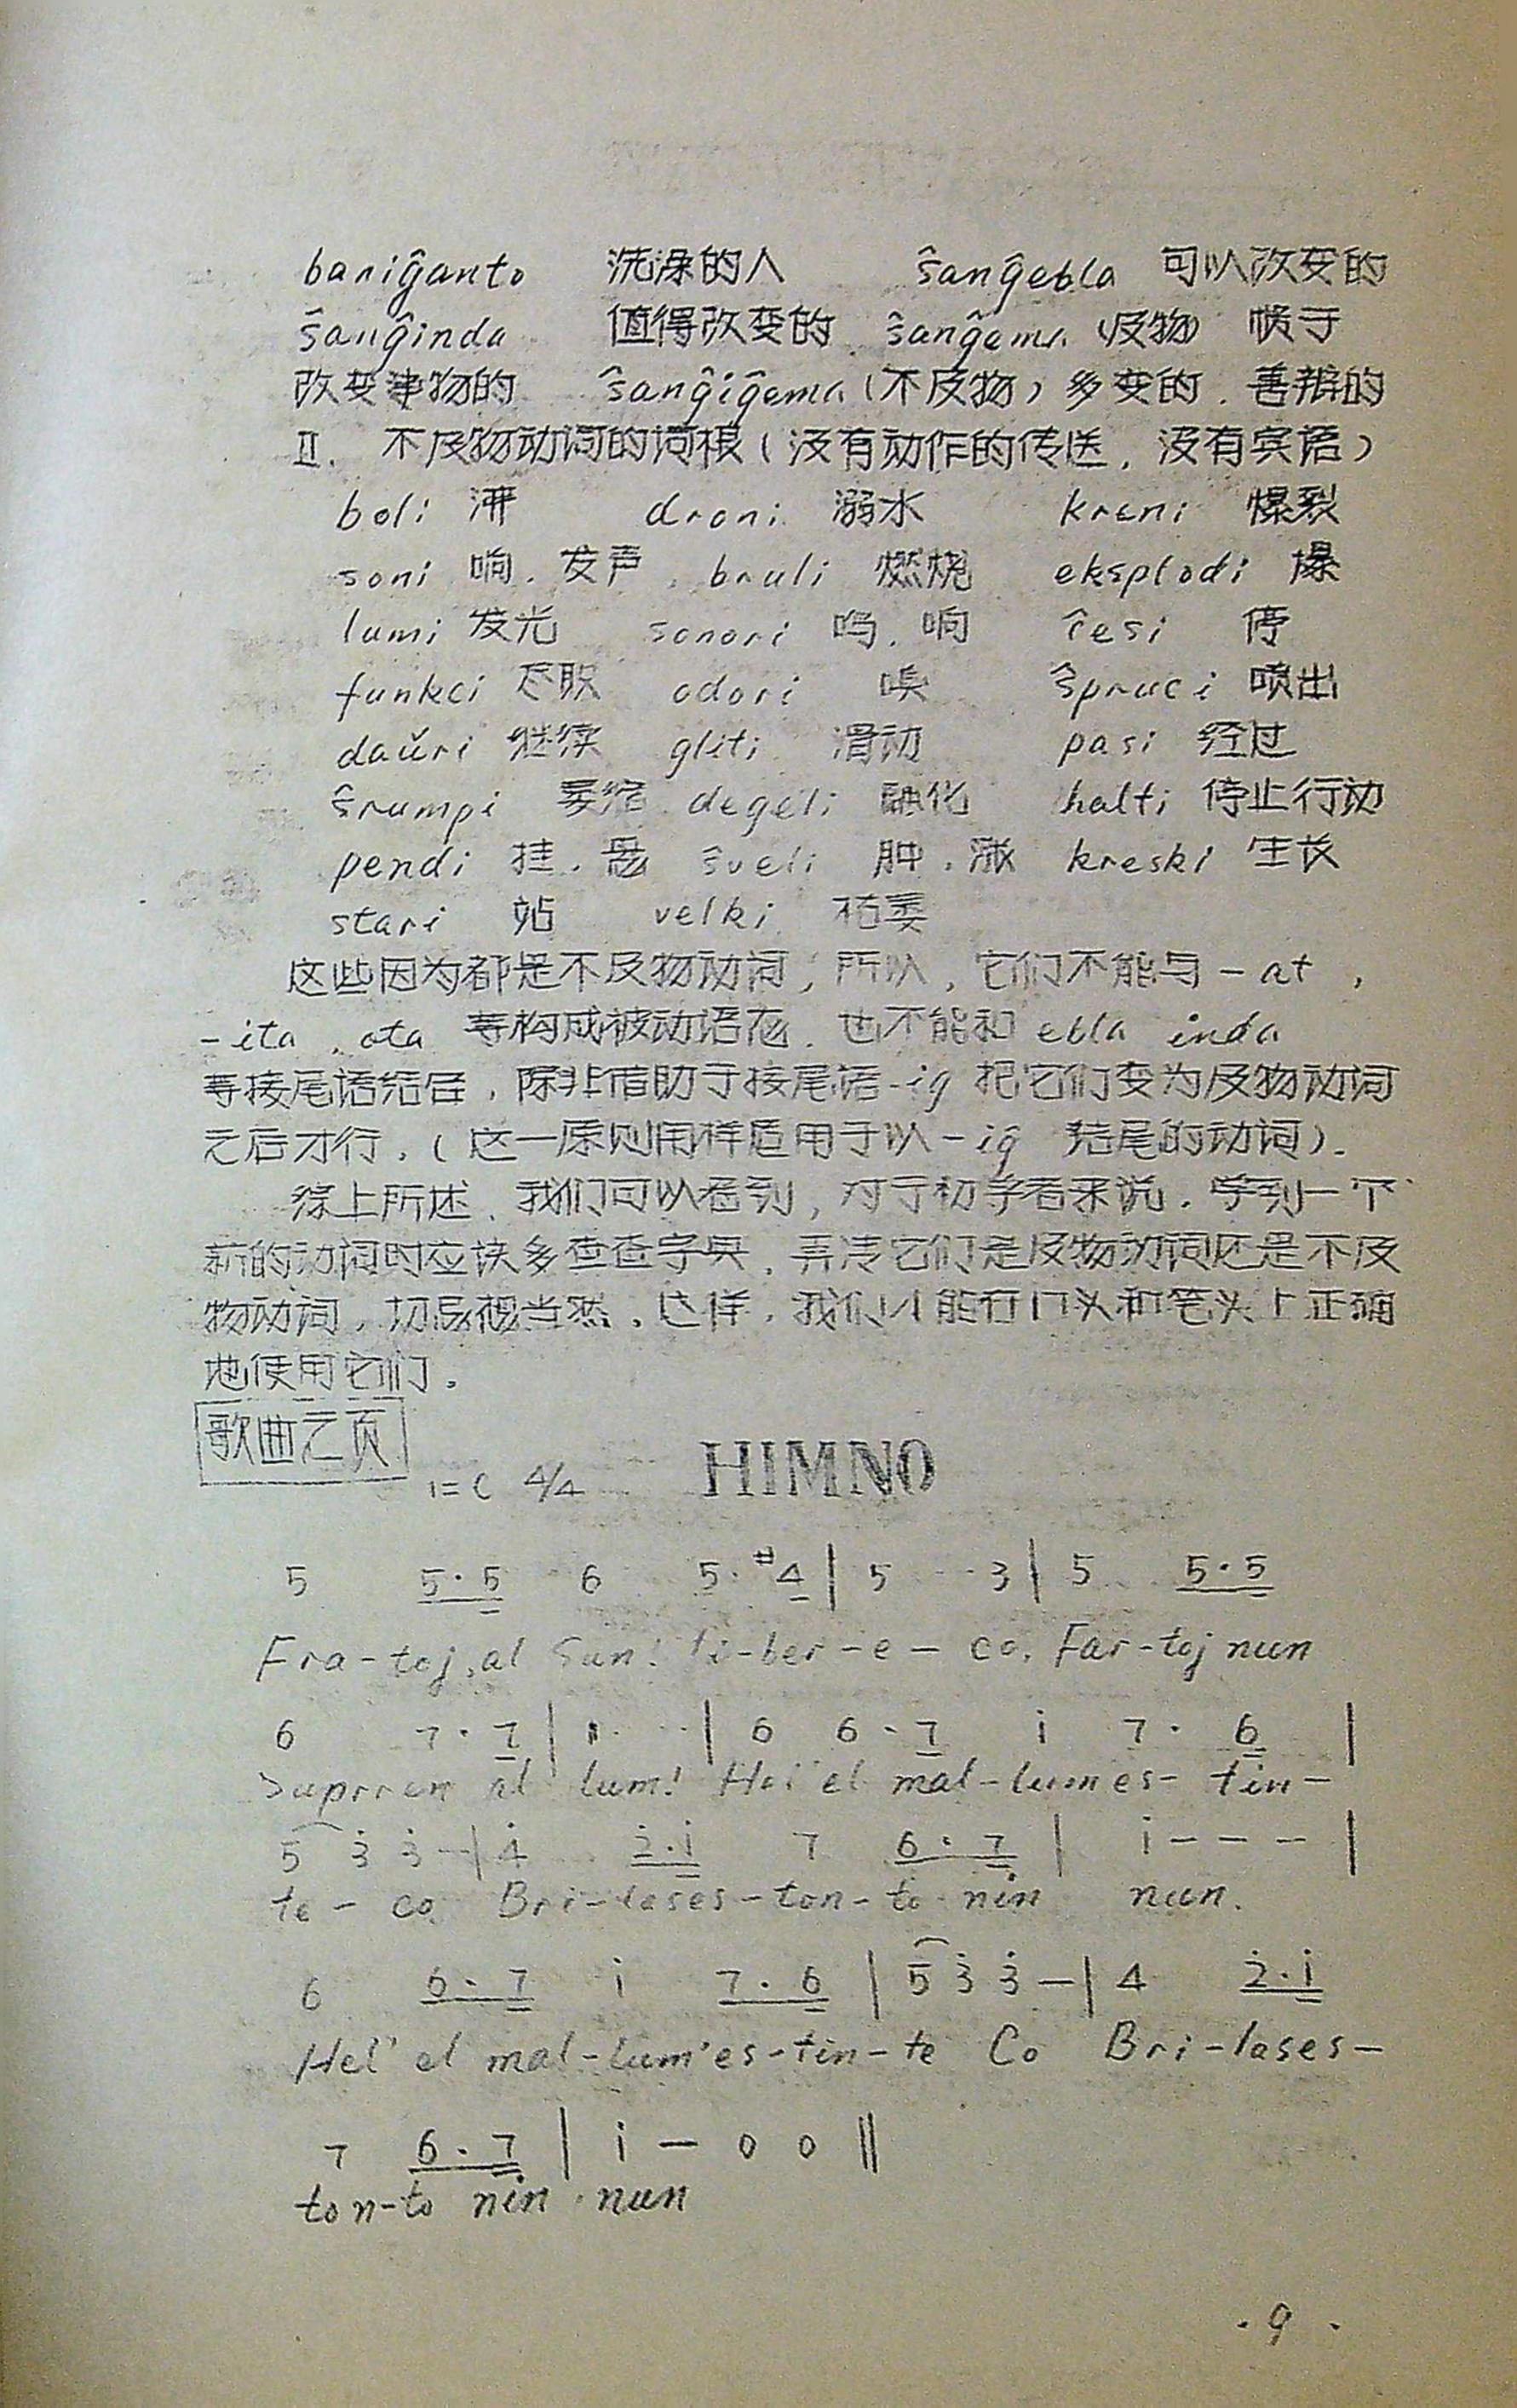 baniĝanto 洗澡的人 ŝanĝebla 可以改变的
ŝanĝinda 值得改变的 ŝanĝema (及物) 惯于
改变事物的 ŝanĝiĝema (不及物) 多变的. 善辩的
II. 不及物动词的词根(没有动作的传送, 没有宾语)
boli 沸 droni 溺水 kreni 爆裂
soni 响. 发声. bruli 燃烧 eksplodi 爆
lumi 发光 sonori 鸣. 响 ĉesi 停
funkci 尽职 odori 嗅 ŝpruci 喷出
daŭri 继续 gliti 滑动 pasi 经过
ŝrumpi 萎缩 degeli 融化 halti 停止行动
pendi 挂. 悬 ŝveli 肿. 涨 kreski 生长
stari 站 velki 枯萎
这些因为都是不及物动词, 所以, 它们不能与 -at ,
-ita . ota 等构成被动语态. 也不能和 ebla inda
等接尾语结合, 除非借助于接尾语-ig 把它们变为及物动词
之后才行. (这一原则同样适用于以-iĝ 结尾的动词).
综上所述, 我们可以看到, 对于初学者来说. 学到一个
新的动词时应该多查查字典, 弄清它们是及物动词还是不及
物动词, 切忌想当然. 这样, 我们才能在口头和笔头上正确
地使用它们.
歌曲之页
1=C 4/4 HIMNO
5 5·5 6 5·#4 | 5 - - 3 | 5 5·5
Fra-toj, al Sun! li-ber-e-co. Far-toj nun
6 7·7 | i - - | 6 6·7 i 7·6 |
Supren al lum! Hel' el mal-lum es-tin-
5 3 3 - | 4 2·i 7 6·7 | i - - - |
te-co Bri-lases-ton-to nin nun.
6 6·7 i 7·6 | 5 3 3 — | 4 2·i
Hel' el mal-lum'es-tin-te Co Bri-lases-
7 6·7 | i — 0 0 ‖
ton-to nin nun
·9·